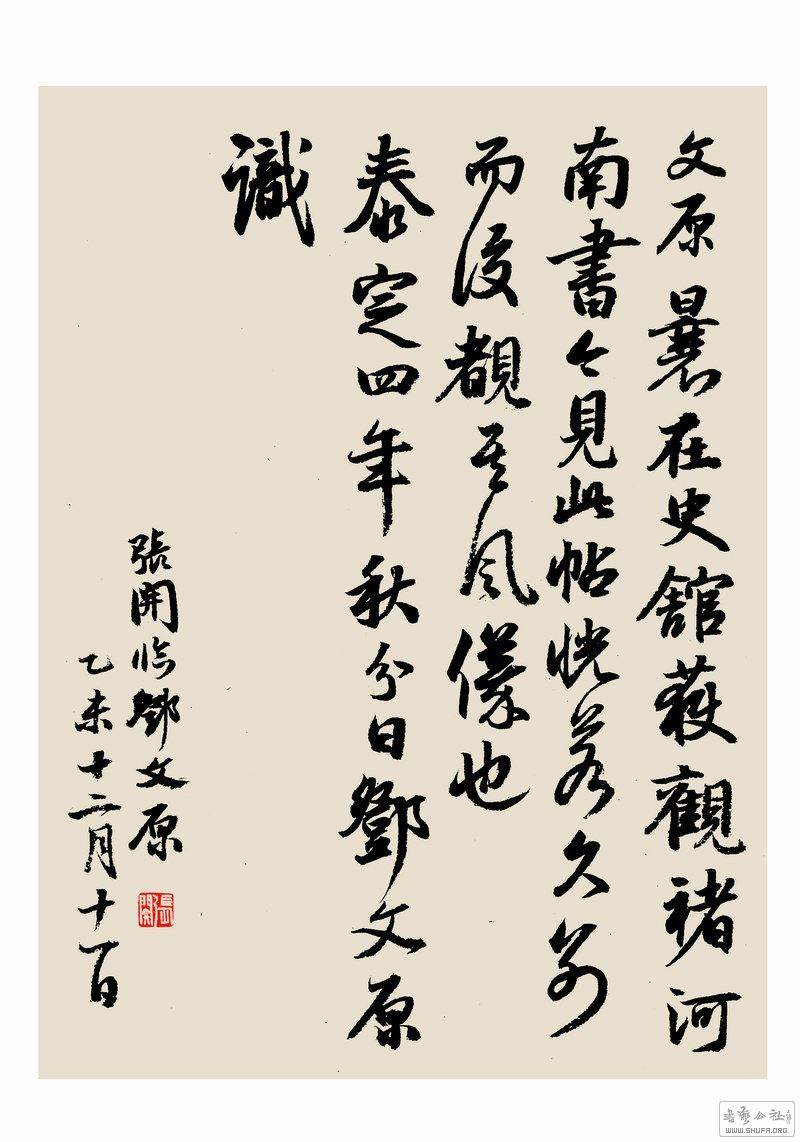 文原曩在史館获觀褚河
南書今見此帖恍若久别
而復覩其风儀也
泰定四年秋分日鄧文原
識
張開臨鄧文原
乙未十二月十一日
張開
書藝公社
WWW.SHUFA.ORG